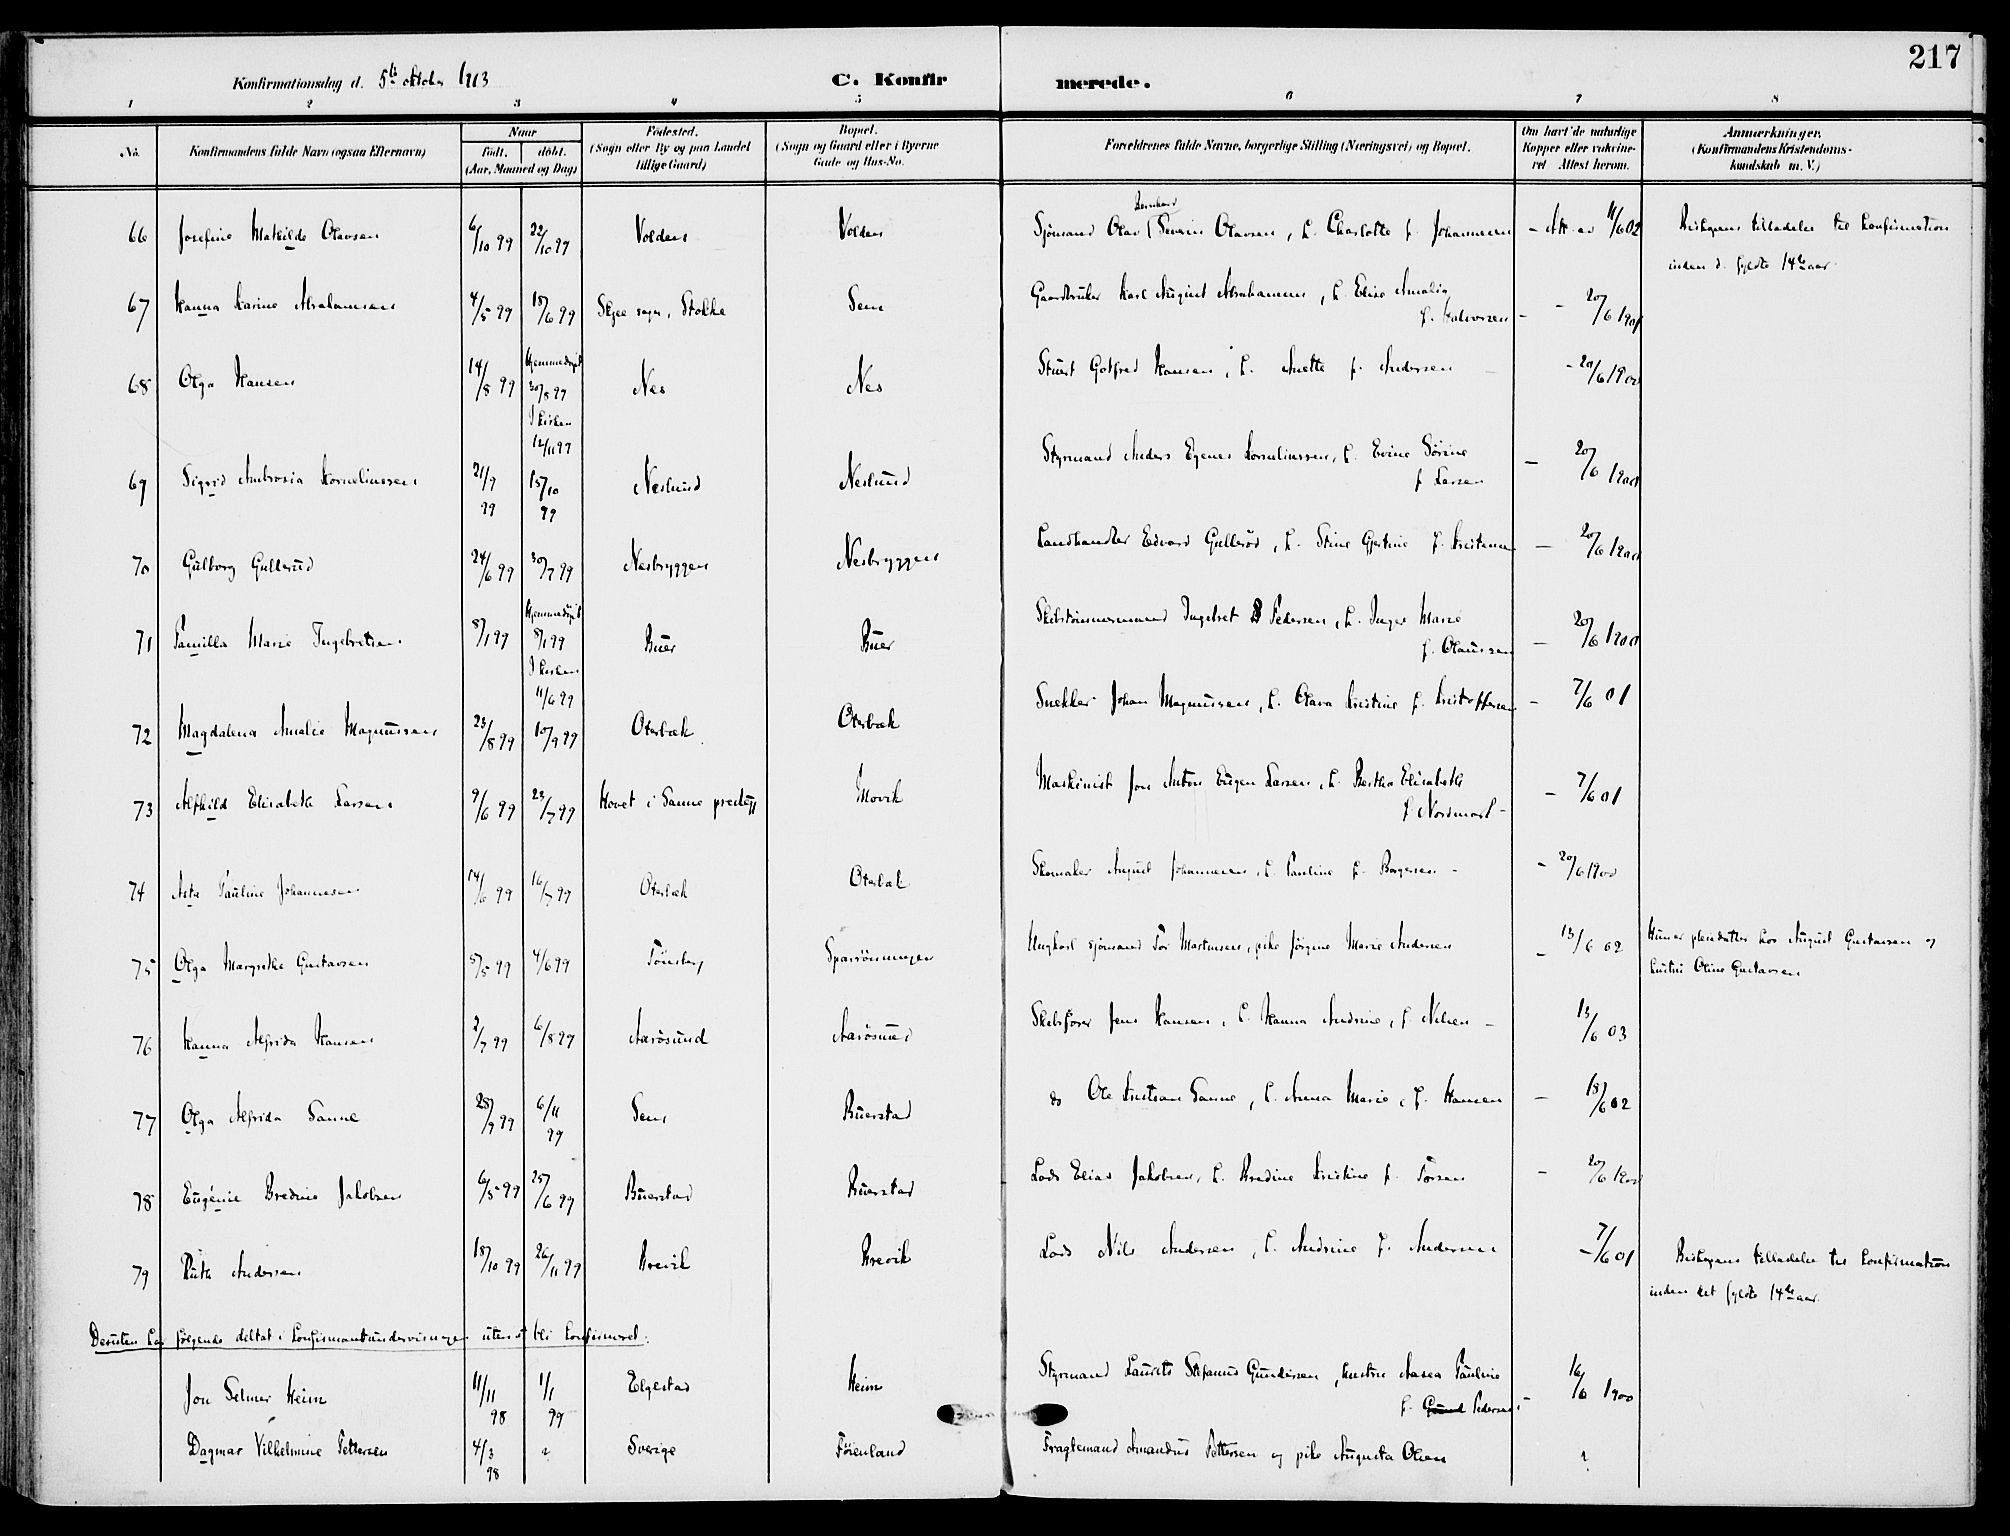 217
Konfirmationsdag d. 5te oktober 1913 C. Konfirmerede.
1 2 3 4 5 6 7 8
No. Konfirmandens fulde Navn (ogsaa Efternavn) Naar født. døbt. (Aar, Maaned og Dag) Fødested. (Sogn eller By og paa Landet tillige Gaard) Bopæl. (Sogn og Gaard eller i Byerne Gade og Hus-No. Forældrenes fulde Navne, borgerlige Stilling (Næringsvei) og Bopæl. Om havt de naturlige Kopper eller vaksineret Attest herom. Anmærkninger. (Konfirmandens Kristendomskundskab m. V.)
66 Josefine Mathilde Olavsen 6/10 99 22/10 99 Volden Volden Sjømand Olav Bernhard Severin Olavsen, h. Charlotte f. Johannesen - Att. av 11/6 02 Biskopens tilladelse til konfirmation
inden d. fyldte 14de aar.
67 Hanna Karine Abrahamsen 4/5 99 18/6 99 Skjee sogn, Stokke Sem Gaardbruker Karl August Abrahamsen, h. Elise Amalia
f. Halvorsen - - 20/6 1901
68 Olga Hansen 14/8 99 Hjemmedøpt 30/8 99 I kirken 12/11 99 Nes Nes Stuert Gotfred Hansen, h. Anette f. Andersen - 20/6 1900
69 Sigrid Ambrosia Korneliussen 21/9 99 15/10 99 Neslund Neslund Styrmand Anders Egenes Korneliussen, h. Evine Sørine
f. Larsen - 20/6 1900
70 Gulborg Gullerud 24/6 99 30/7 99 Nesbryggen Nesbryggen Landhandler Edvard Gullerød, h. Stine Gjertine f. Kristensen - 20/6 1900
71 Pamilla Marie Ingebretsen 8/1 99 Hjemmedøpt 8/1 99 I kirken 11/6 99 Buer Buer Skibstømmermand Ingebret Pedersen, h. Inger Marie
f. Olaussen - 20/6 1900
72 Magdalena Amalie Magnussen 23/8 99 10/9 99 Oterbæk Oterbæk Snekker Johan Magnussen, h. Olava Kristine f. Kristoffersen - 7/6 01
73 Alfhild Elisabeth Larsen 9/6 99 23/7 99 Hovet i Sanne Hovik Maskinist Jon Anton Eugen Larsen, h. Bertha Elisabeth
f. Nordmark - - 7/6 01
74 Asta Pauline Johannesen 14/6 99 16/7 99 Oterbæk Oterbæk Skomaker August Johannesen, h. Pauline f. Borgersen - - 20/6 1900
75 Olga Margrethe Gustavsen 5/5 99 4/6 99 Tønsberg Ungkarl sjømand Tor Martinsen, pike Jørgine Marie Andersen - 13/6 02 Hun er pleiedatter hos August Gustavsen og
hustru Oline Gustavsen
76 Hanna Alfrida Hansen 2/7 99 6/8 99 Aarøsund Aarøsund Skibsfører Jens Hansen, h. Hanna Andrine, f. Nilsen - 13/6 03
77 Olga Alfrida Sanne 28/9 99 6/11 99 Sem Buerstad do Ole Kristian Sanne, h. Anna Marie, f. Hansen - 18/6 02
78 Eugenie Bredine Jakobsen 6/5 99 25/6 99 Buerstad Buerstad Lods Elias Jakobsen, h. Bredine Kristine f. Torsen - 20/6 1900
79 Ruth Andersen 18/10 99 26/11 99 Brevik Brevik Lods Nils Andersen, h. Andrine f. Andersen - 7/6 01 Biskopens tilladelse til konfirmation
inden det fyldte 14de aar.
Desuten har følgende deltat i konfirmantundervisningen uten at bli konfirmeret:
Jon Selmer Heim 11/11 98 1/1 99 Elgestad Heim Styrmand Laurits Stefanus Gundersen, hustru Aasea Pauline
f. Pedersen - 16/6 1900
Dagmar Vilhelmine Pettersen 4/3 98 ? Sverige Føienland Fragtemand Amandus Pettersen og pike Augusta Olsen ?